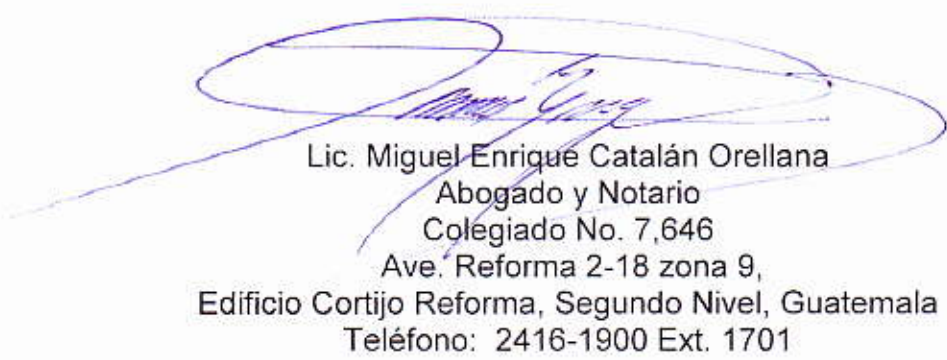 Lic. Miguel Enrique Catalán Orellana
Abogado y Notario
Colegiado No. 7,646
Ave. Reforma 2-18 zona 9,
Edificio Cortijo Reforma, Segundo Nivel, Guatemala
Teléfono: 2416-1900 Ext. 1701